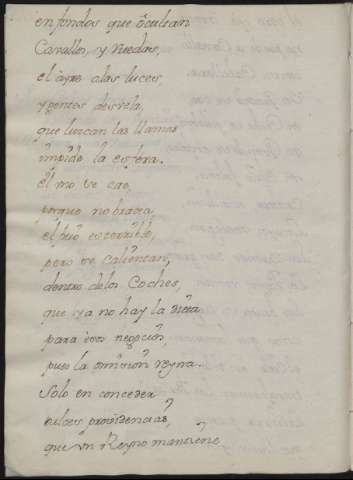 en fondos que ôcultan
Cavallos, y ruedas,
el ayre alas luces
y gentes desvela,
que luzcan las llamas
impide la esfera.
él no se cae,
porque no
el frio es terrible,
pero se calientan,
dentro delos Coches,
que ya no hay la
para esos negocios,
pues la reyna
solo en conceder
dulces providencias,
que un Reyno mantiene